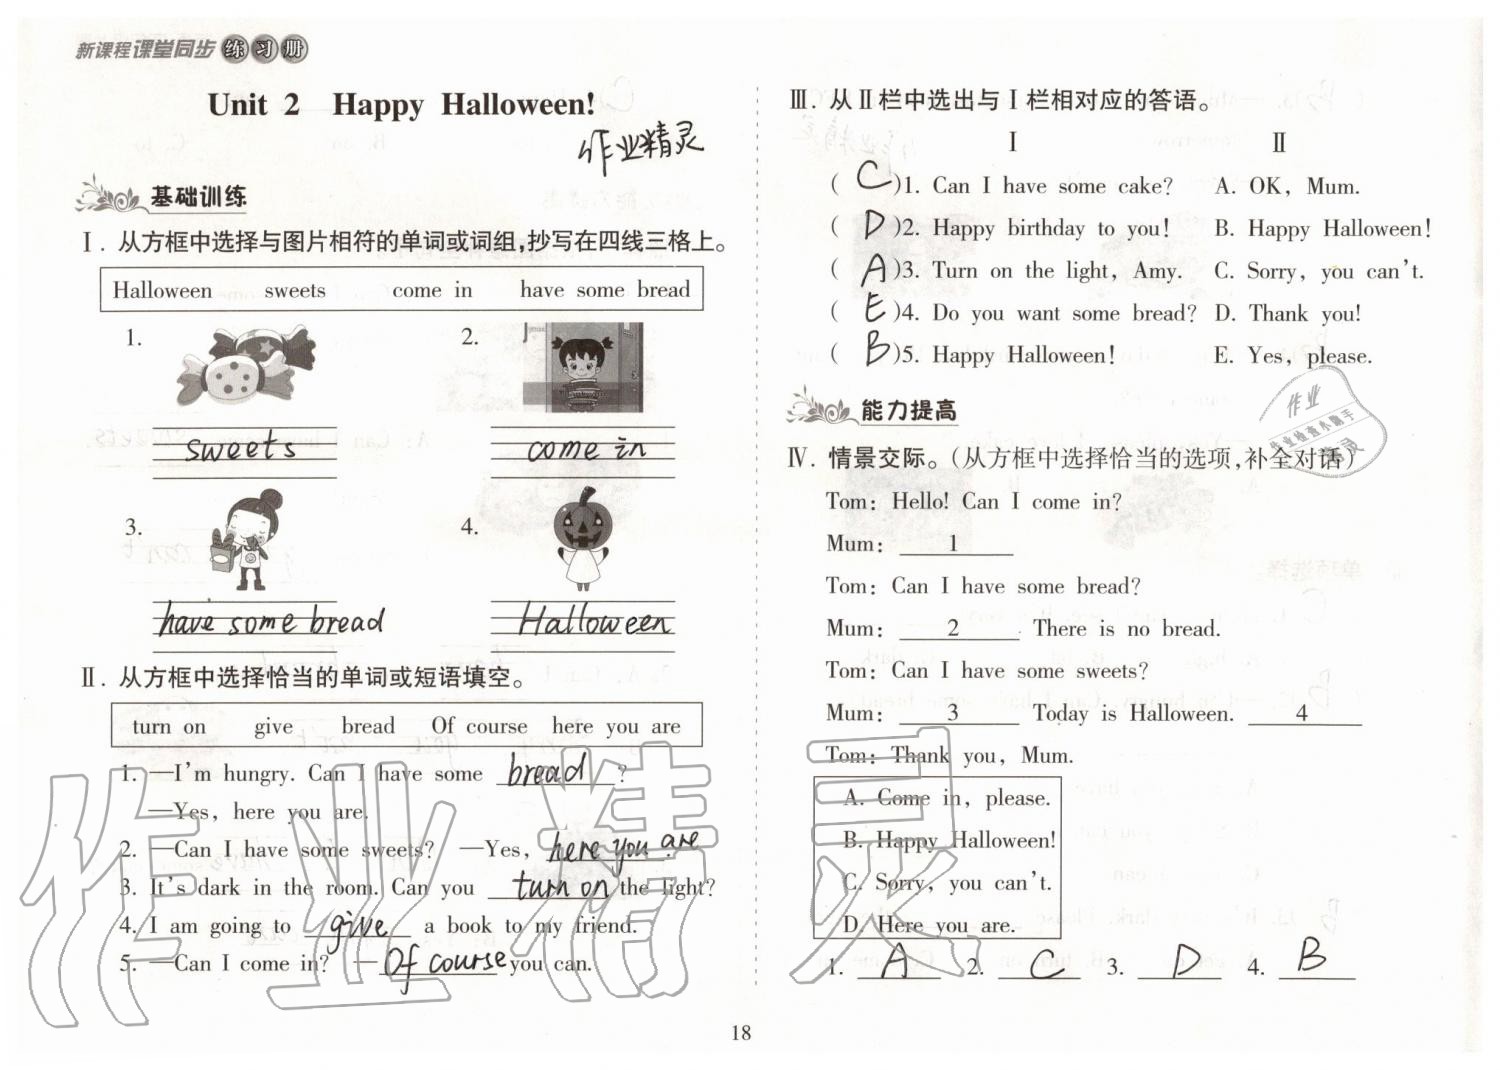 新课程 课堂同步 练习册
Unit 2 Happy Halloween!
作业精灵
基础训练
Ⅰ. 从方框中选择与图片相符的单词或词组,抄写在四线三格上。
Halloween sweets come in have some bread
1. 2.
sweets come in
3. 4.
have some bread Halloween
Ⅱ. 从方框中选择恰当的单词或短语填空。
turn on give bread Of course here you are
1. —I'm hungry. Can I have some bread ?
—Yes, here you are.
2. —Can I have some sweets? —Yes, here you are.
3. It's dark in the room. Can you turn on the light?
4. I am going to give a book to my friend.
5. —Can I come in? — Of course you can.
Ⅲ. 从Ⅱ栏中选出与Ⅰ栏相对应的答语。
Ⅰ Ⅱ
( C )1. Can I have some cake? A. OK, Mum.
( D )2. Happy birthday to you! B. Happy Halloween!
( A )3. Turn on the light, Amy. C. Sorry, you can't.
( E )4. Do you want some bread? D. Thank you!
( B )5. Happy Halloween! E. Yes, please.
能力提高
Ⅳ. 情景交际。(从方框中选择恰当的选项,补全对话)
Tom: Hello! Can I come in?
Mum: 1
Tom: Can I have some bread?
Mum: 2 There is no bread.
Tom: Can I have some sweets?
Mum: 3 Today is Halloween. 4
Tom: Thank you, Mum.
A. Come in, please.
B. Happy Halloween!
C. Sorry, you can't.
D. Here you are.
1. A 2. C 3. D 4. B
18
作业精灵
作业